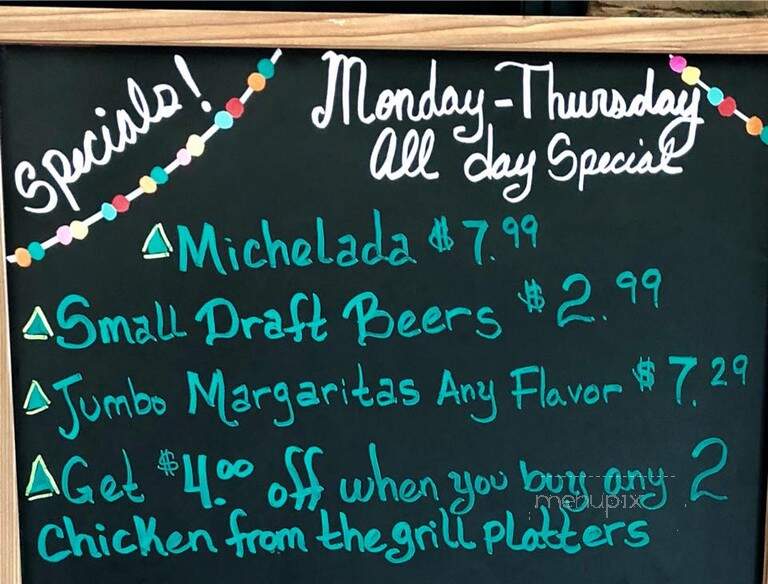 Specials!
Monday-Thursday
All day Special
Michelada $7.99
Small Draft Beers $2.99
Jumbo Margaritas Any Flavor $7.29
Get $4.00 off when you buy any 2
Chicken from the grill platters
menupix